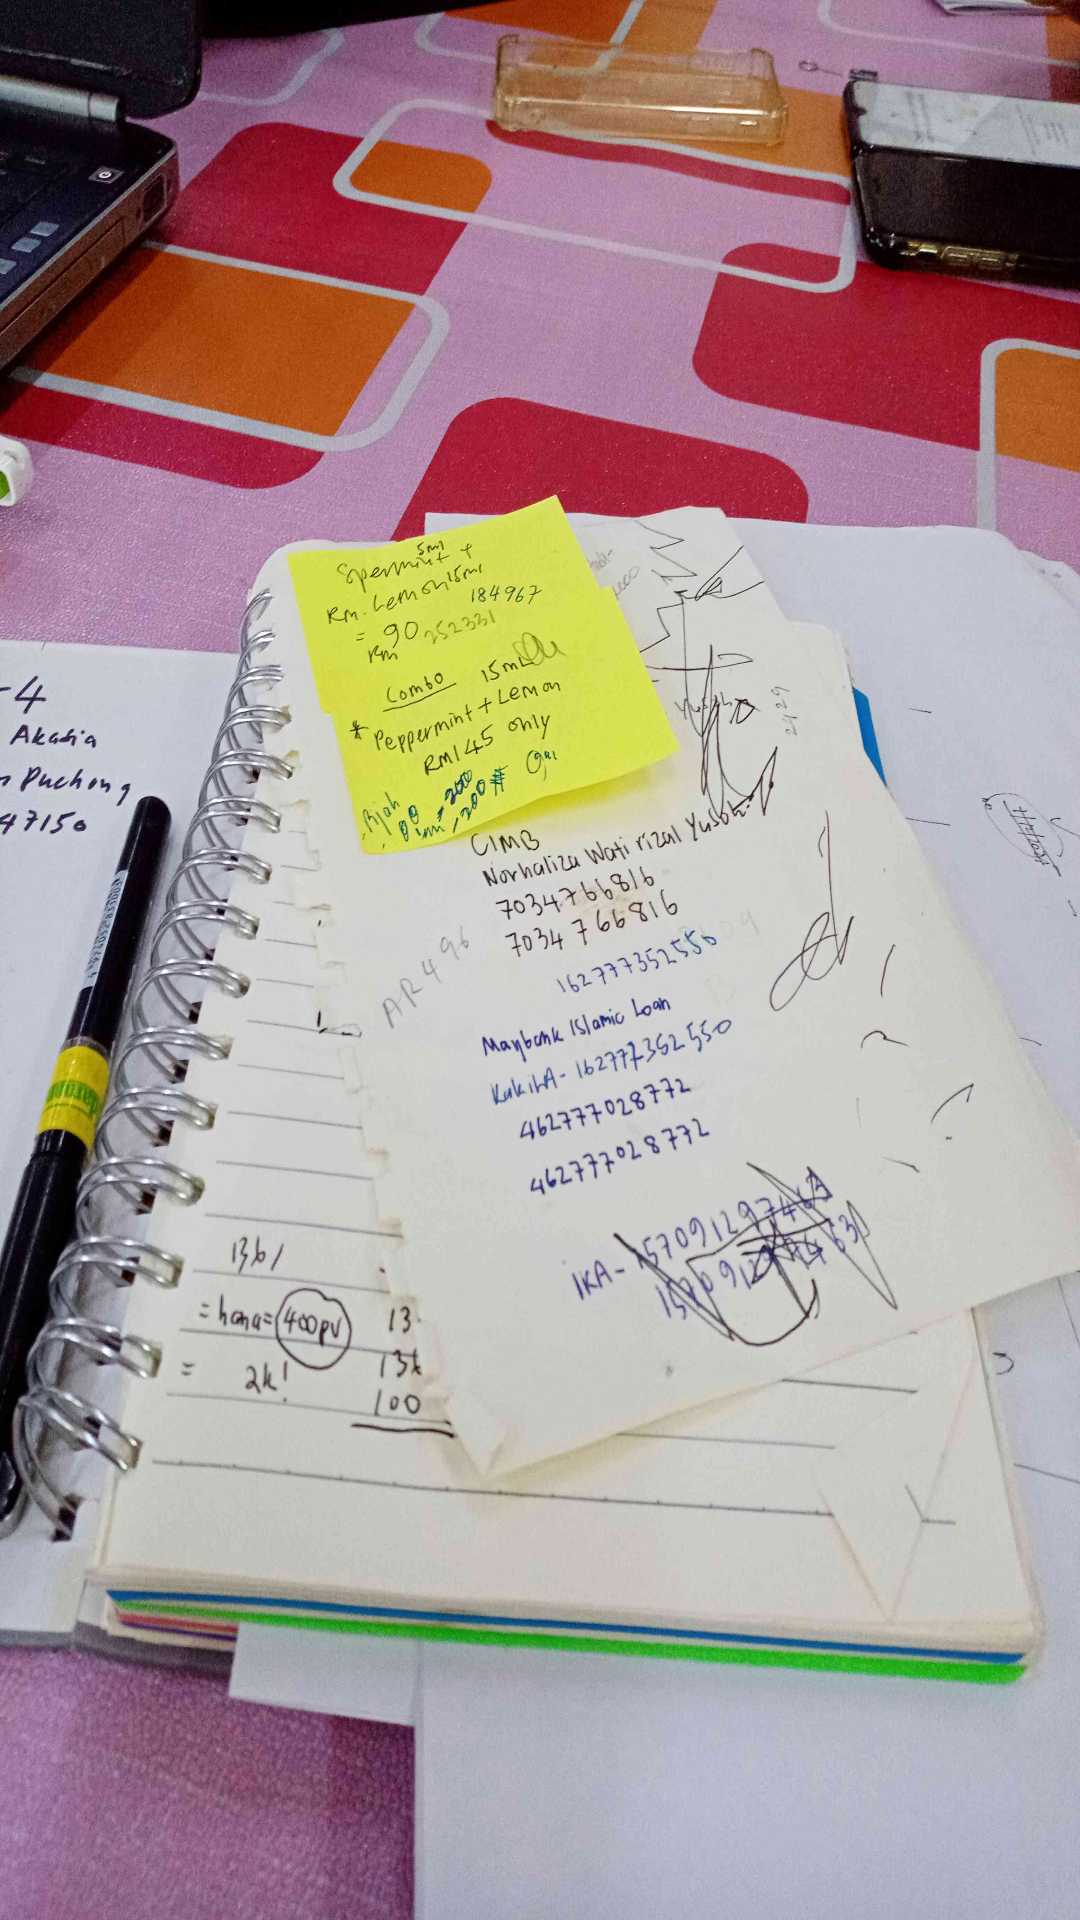 -4
Akasia
Puchong
47150
5ml
Spermint +
Rm. Lemon 15ml
184967
= 90 252331
Rm
Combo 15ml
* Peppermint + Lemon
RM145 only
= 2000
200#
CIMB
Norhaliza Wati rizal Yusoh
7034766816
7034766816
AR496
162777352550
Maybank Islamic Loan
KakitA - 162777352550
462777028772
462777028772
IKA - 157091297463
2429
13b1
= hana= 400pv 13
= 2k! 13k
100